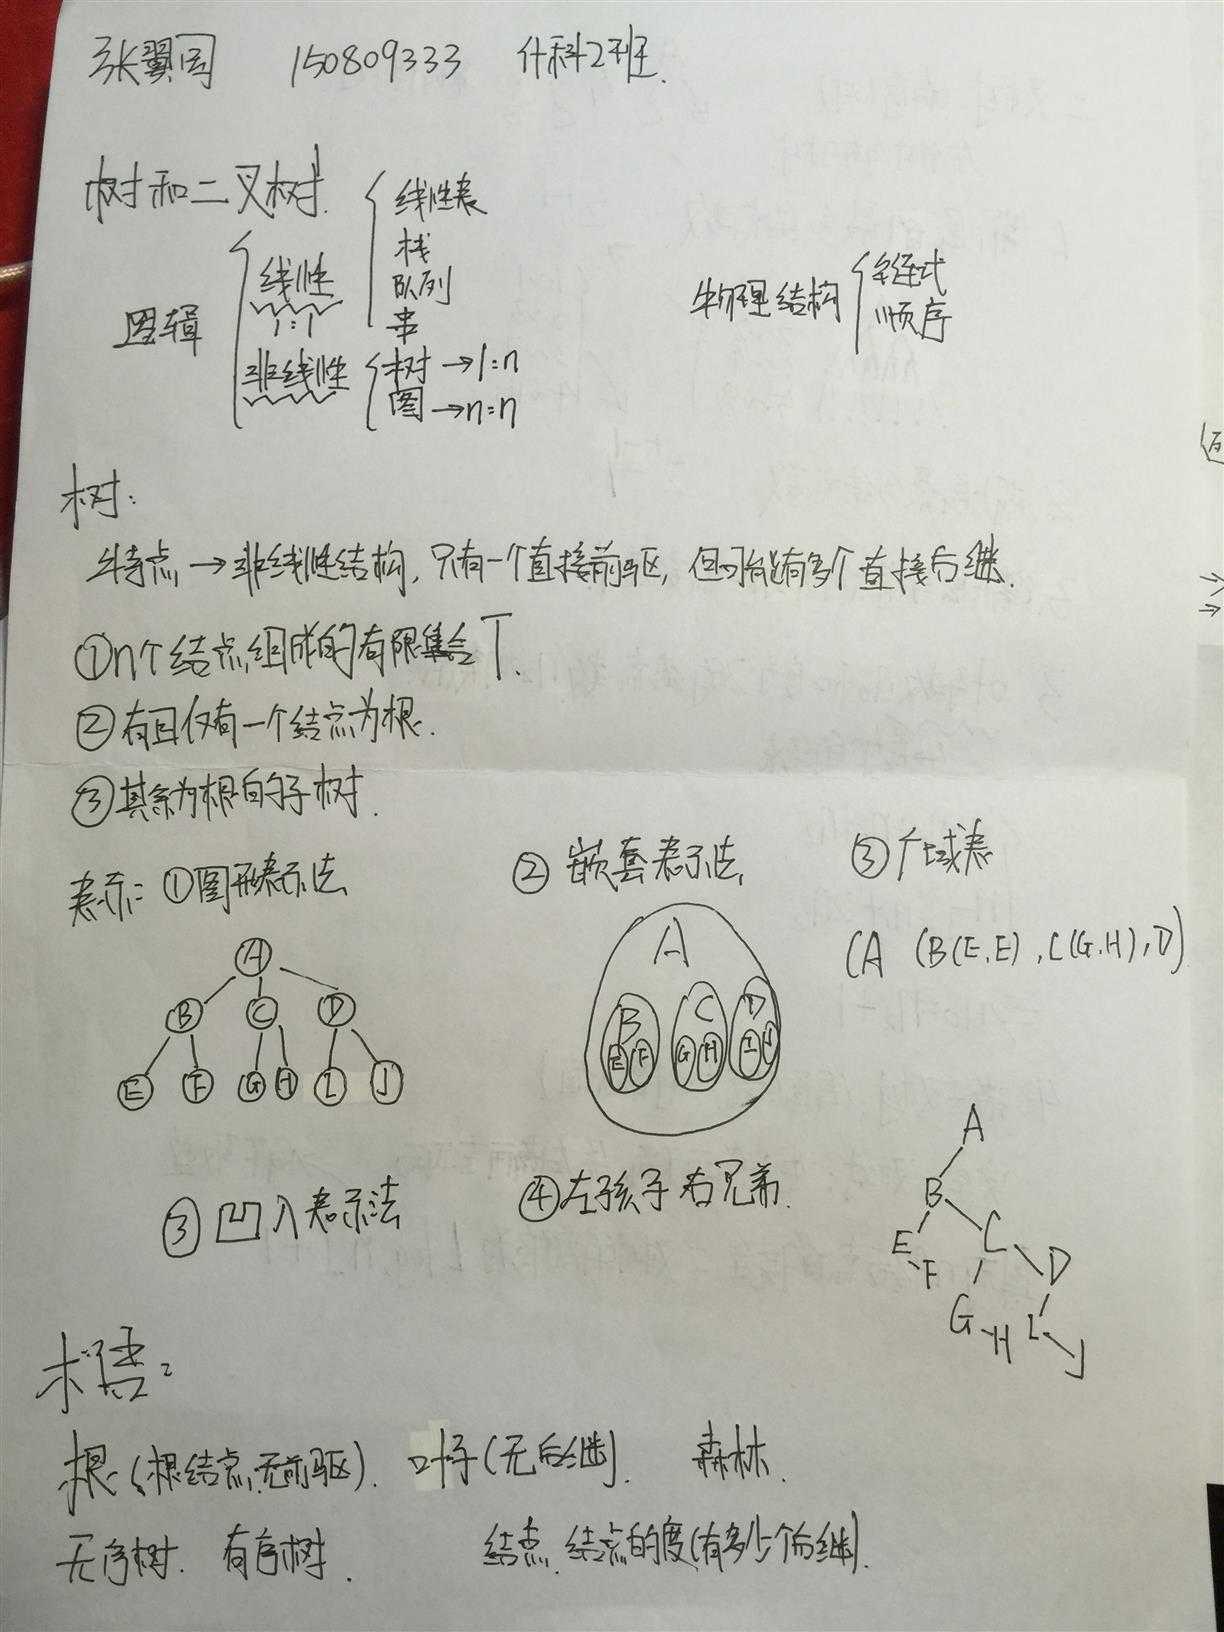 张翼国 150809333 计科2班.
树和二叉树.
逻辑
线性
1:1
非线性
线性表
栈
队列
串
树→1:n
图→n:n
物理结构
链式
顺序
树:
特点→非线性结构,只有一个直接前驱,但可能有多个直接后继.
①n个结点组成的有限集合T.
②有且仅有一个结点为根.
③其余为根的子树.
表示: ①图形表示法
②嵌套表示法
③广域表
(A (B(E,E),C(G,H),D)
A
B C D
E F G H I J
A
B C D
E F G H I J
③凹入表示法
④左孩子右兄弟.
A
B
E C
F D
G H I J
术语:
根(根结点,无前驱). 叶子(无后继). 森林.
无序树. 有序树. 结点. 结点的度(有多少个后继).